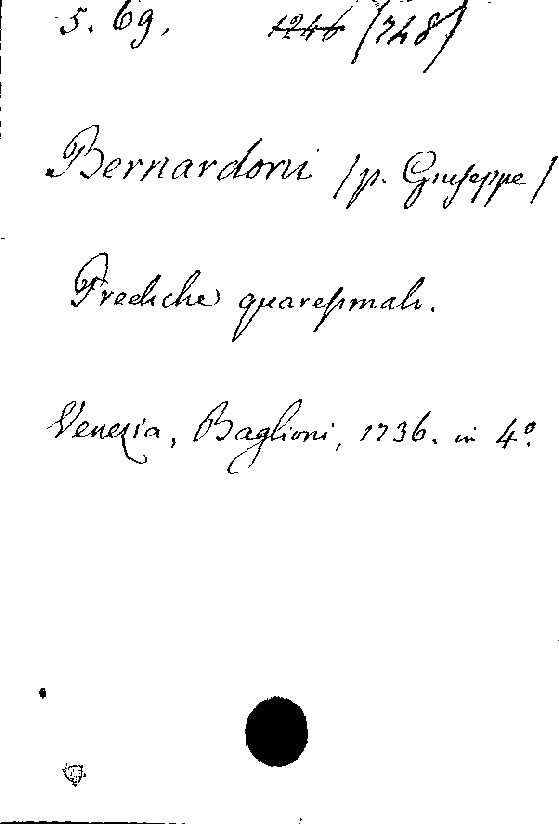 5. 69. 1246 (748)
Bernardoni (p. Giuseppe)
Prediche quaresimali.
Venezia, Baglioni, 1736. in 4º.